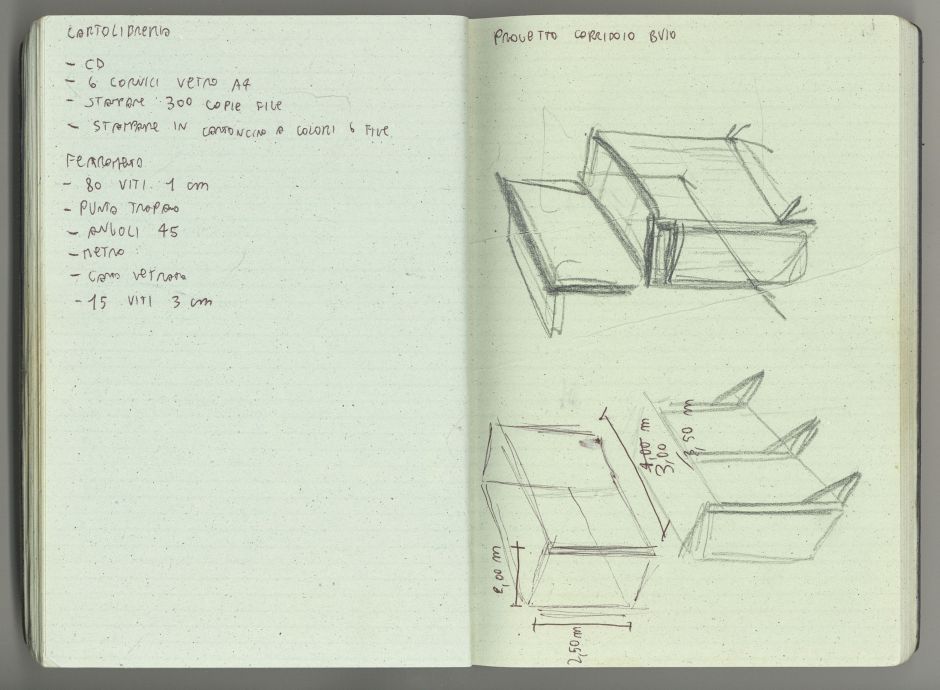 CARTOLIBRERIA
- CD
- 6 CORNICI VETRO A4
- STAMPARE 300 COPIE FILE
- STAMPARE IN CARTONCINO A COLORI 6 FILE
FERRAMENTA
- 80 VITI 1 cm
- PUNTA TRAPANO
- ANGOLI 45
- METRO
- CARTA VETRATA
- 15 VITI 3 cm
PROGETTO CORRIDOIO BUIO
4,00 m
3,00
3,50 m
2,00 m
2,50 m